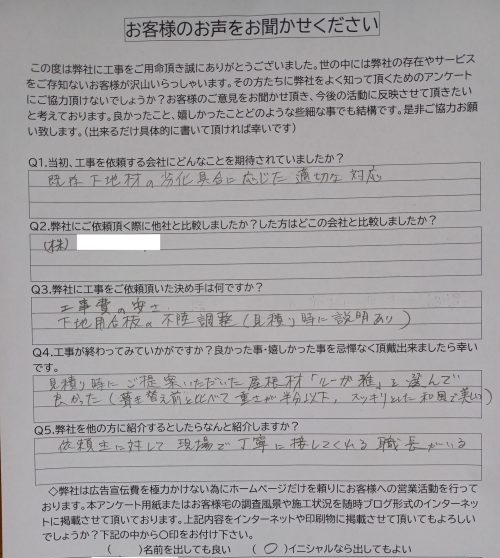 お客様のお声をお聞かせください
この度は弊社に工事をご用命頂き誠にありがとうございました。世の中には弊社の存在やサービス
をご存知ないお客様が沢山いらっしゃいます。その方たちに弊社をよく知って頂くためのアンケート
にご協力頂けないでしょうか？お客様のご意見をお聞かせ頂き、今後の活動に反映させて頂きたい
と考えております。良かったこと、嬉しかったことどのような些細な事でも結構です。是非ご協力お願
い致します。（出来るだけ具体的に書いて頂ければ幸いです）
Q1.当初、工事を依頼する会社にどんなことを期待されていましたか？
既存下地材の劣化具合に応じた適切な対応
Q2.弊社にご依頼頂く際に他社と比較しましたか？した方はどこの会社と比較しましたか？
(株)
Q3.弊社に工事をご依頼頂いた決め手は何ですか？
工事費の安さ
下地用合板の不陸調整（見積り時に説明あり）
Q4.工事が終わってみていかがですか？良かった事・嬉しかった事を忌憚なく頂戴出来ましたら幸い
です。
見積り時にご提案いただいた屋根材「ルーガ雅」を選んで
良かった（葺き替え前と比べて重さが半分以下、スッキリとした和風で美しい）
Q5.弊社を他の方に紹介するとしたらなんと紹介しますか？
依頼主に対して現場で丁寧に接してくれる職長がいる
◇弊社は広告宣伝費を極力かけない為にホームページだけを頼りにお客様への営業活動を行って
おります。本アンケート用紙またはお客様宅の調査風景や施工状況を随時ブログ形式のインターネッ
トに掲載させて頂いております。上記内容をインターネットや印刷物に掲載させて頂いてもよろしい
でしょうか？下記の中から〇印をお付け下さい。
（　　）名前を出しても良い　（ 〇 ）イニシャルなら出してもよい